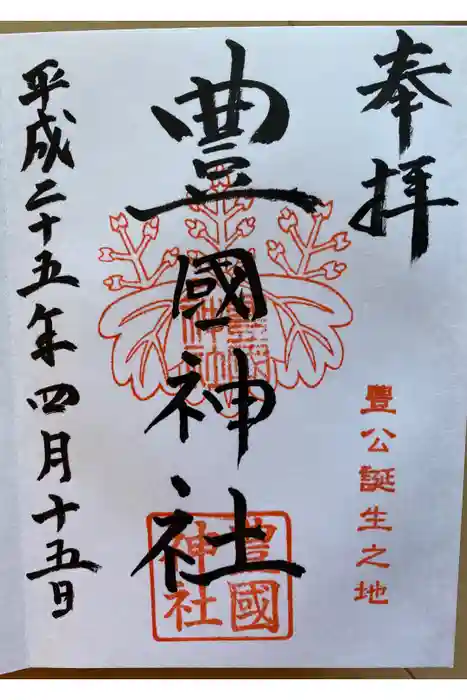 奉拝
豊公誕生之地
豊國神社
豊國神社
豊國神社
平成二十五年四月十五日